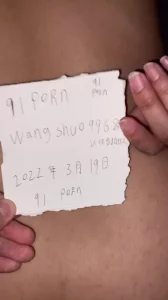 91 PORN
91
PORN
Wangshuo9968
2022年3月19日
91 PORN